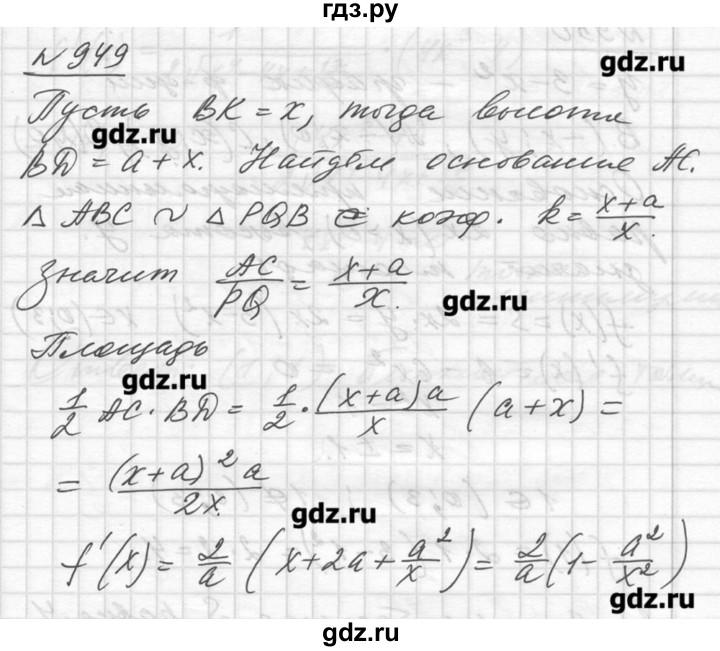 гдз.ру
№ 949
gdz.ru
Пусть BK = x, тогда высота
gdz.ru
BD = a + x. Найдём основание AC.
△ ABC ∼ △ PQB с коэф. k = (x+a)/x.
значит AC/PQ = (x+a)/x.
gdz.ru
Площадь
gdz.ru
1/2 AC · BD = 1/2 · (x+a)a/x (a+x) =
= (x+a)² a/2x
gdz.ru
f'(x) = 2/a (x+2a+a²/x) = 2/a (1 - a²/x²)
gdz.ru
gdz.ru